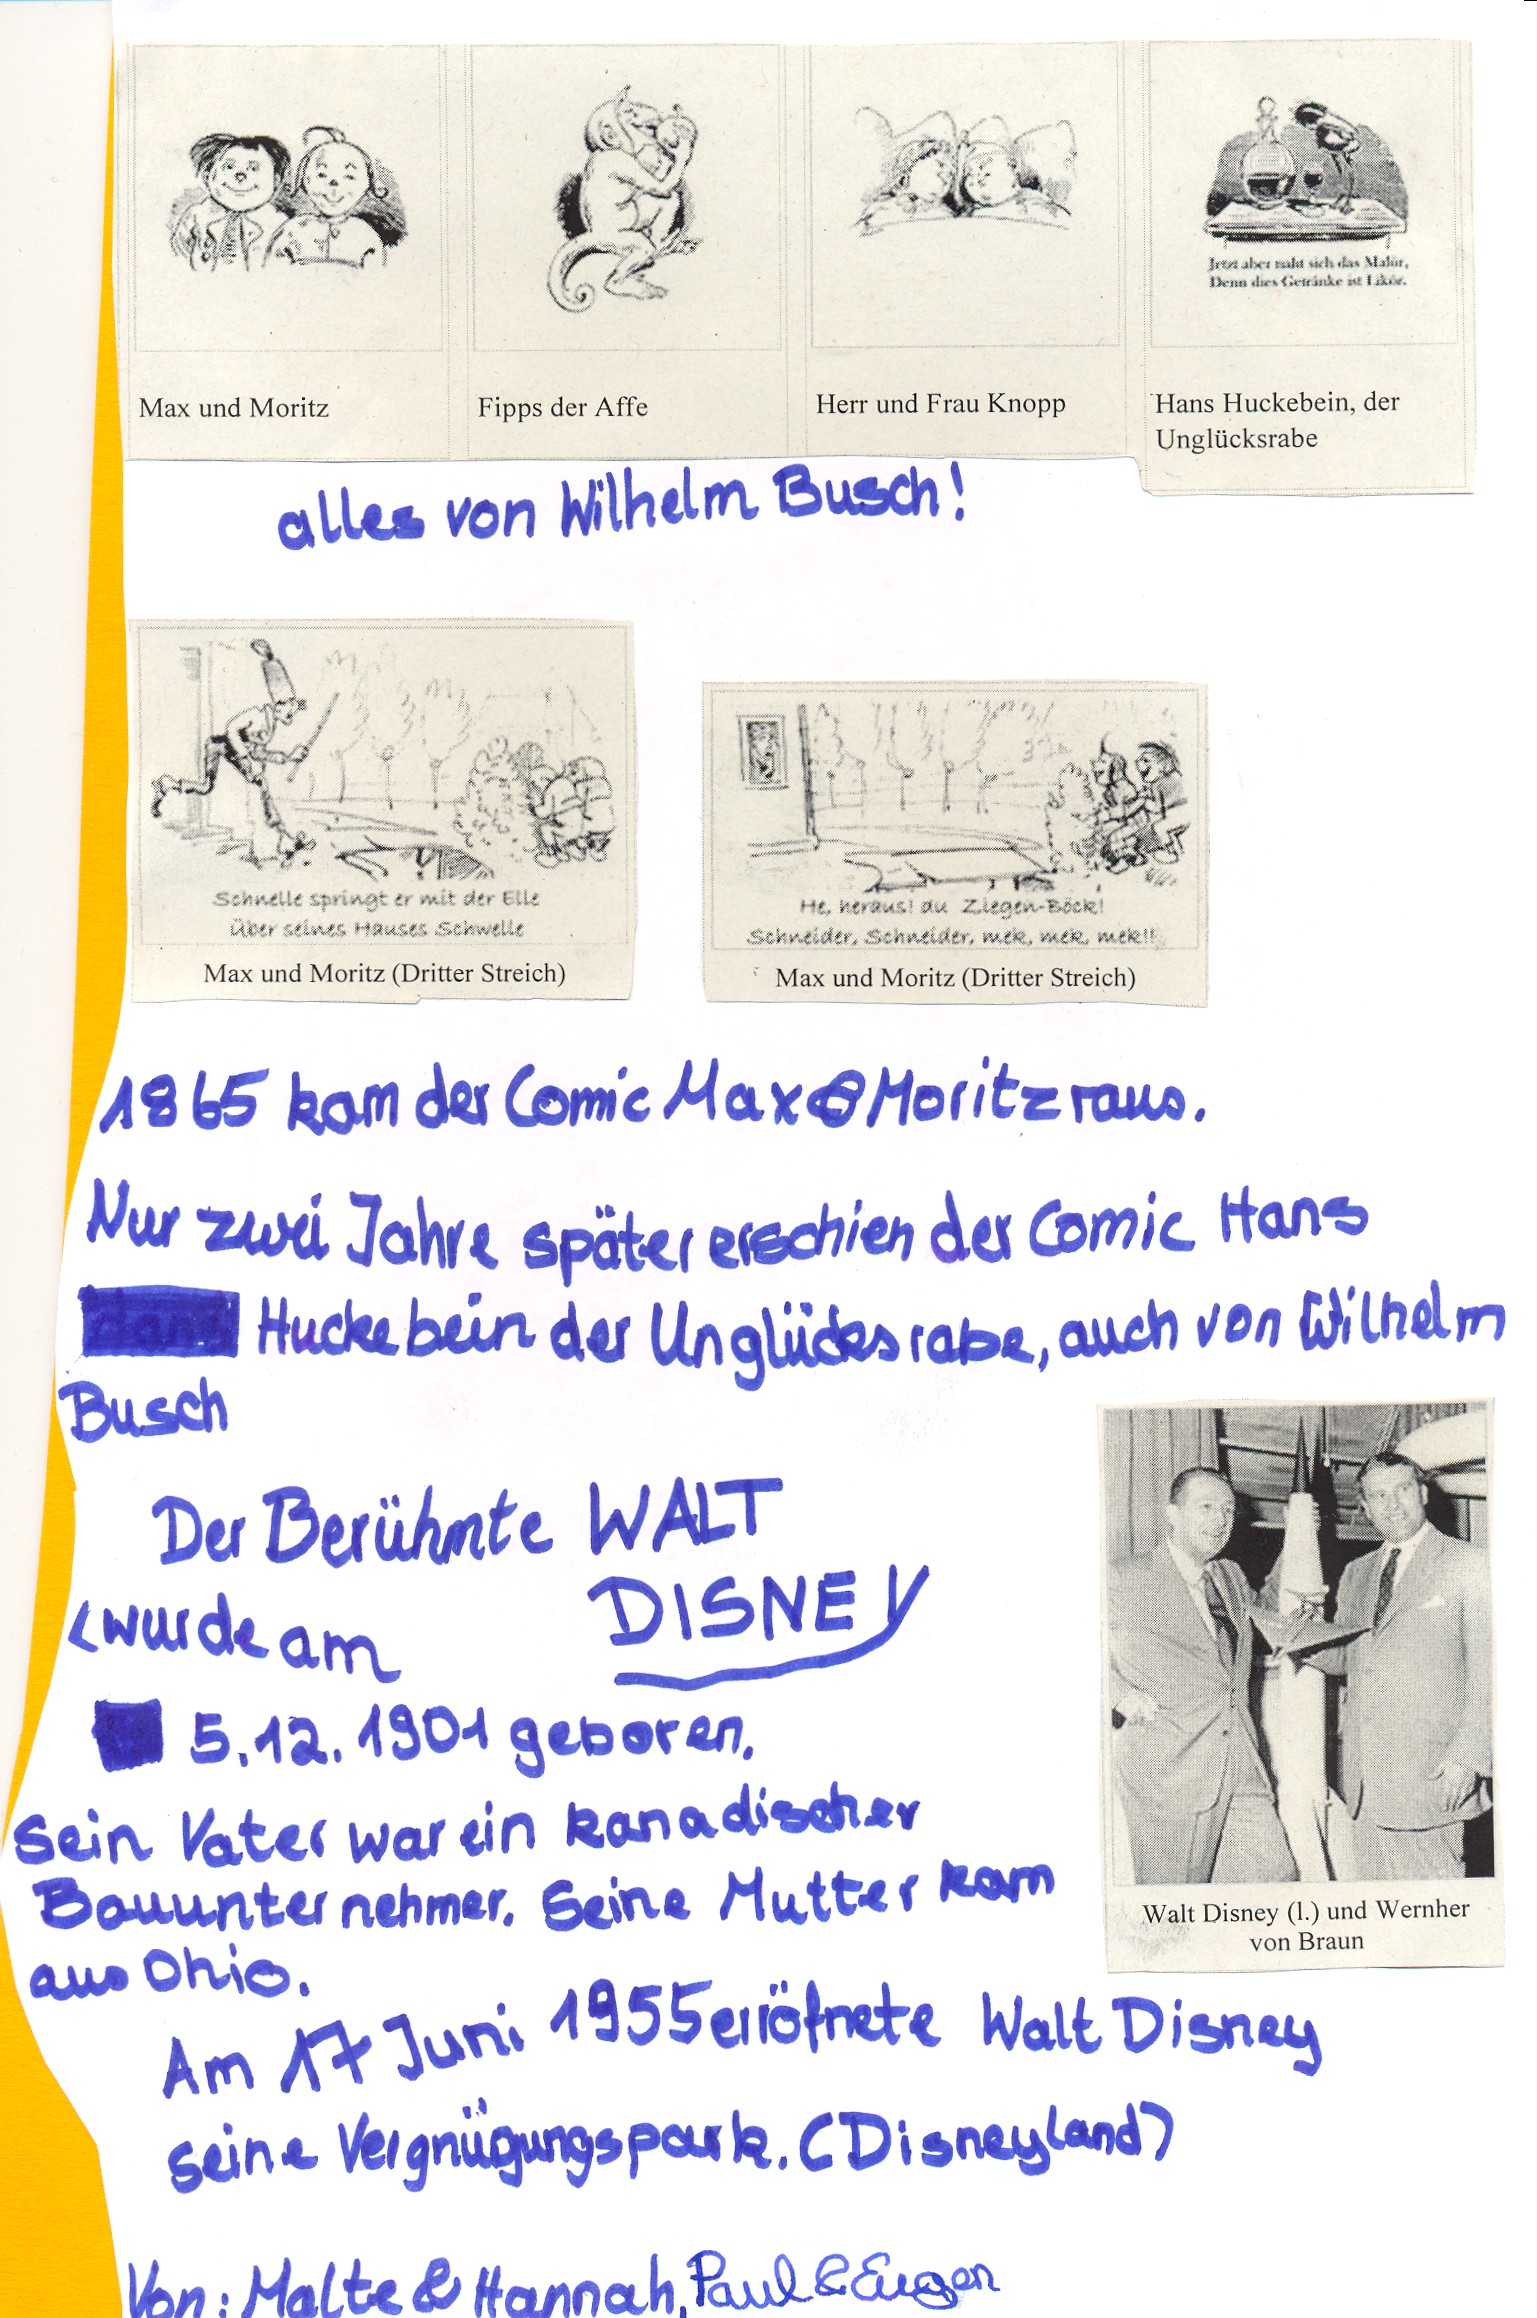 Jetzt aber naht sich das Malör,
Denn dies Getränke ist Likör.
Max und Moritz
Fipps der Affe
Herr und Frau Knopp
Hans Huckebein, der
Unglücksrabe
alles von Wilhelm Busch!
Schnelle springt er mit der Elle
Über seines Hauses Schwelle
Max und Moritz (Dritter Streich)
He, heraus! du Ziegen-Böck!
Schneider, Schneider, mek, mek, mek!!
Max und Moritz (Dritter Streich)
1865 kam der Comic Max & Moritz raus.
Nur zwei Jahre später erschien der Comic Hans
Huckebein der Unglücksrabe, auch von Wilhelm
Busch
Der Berühmte WALT
DISNEY
wurde am
5.12.1901 geboren.
Sein Vater war ein kanadischer
Bauunternehmer. Seine Mutter kam
aus Ohio.
Walt Disney (l.) und Wernher
von Braun
Am 17 Juni 1955 erröfnete Walt Disney
seine Vergnügungspark. (Disneyland)
Von: Malte & Hannah, Paul & Eugen